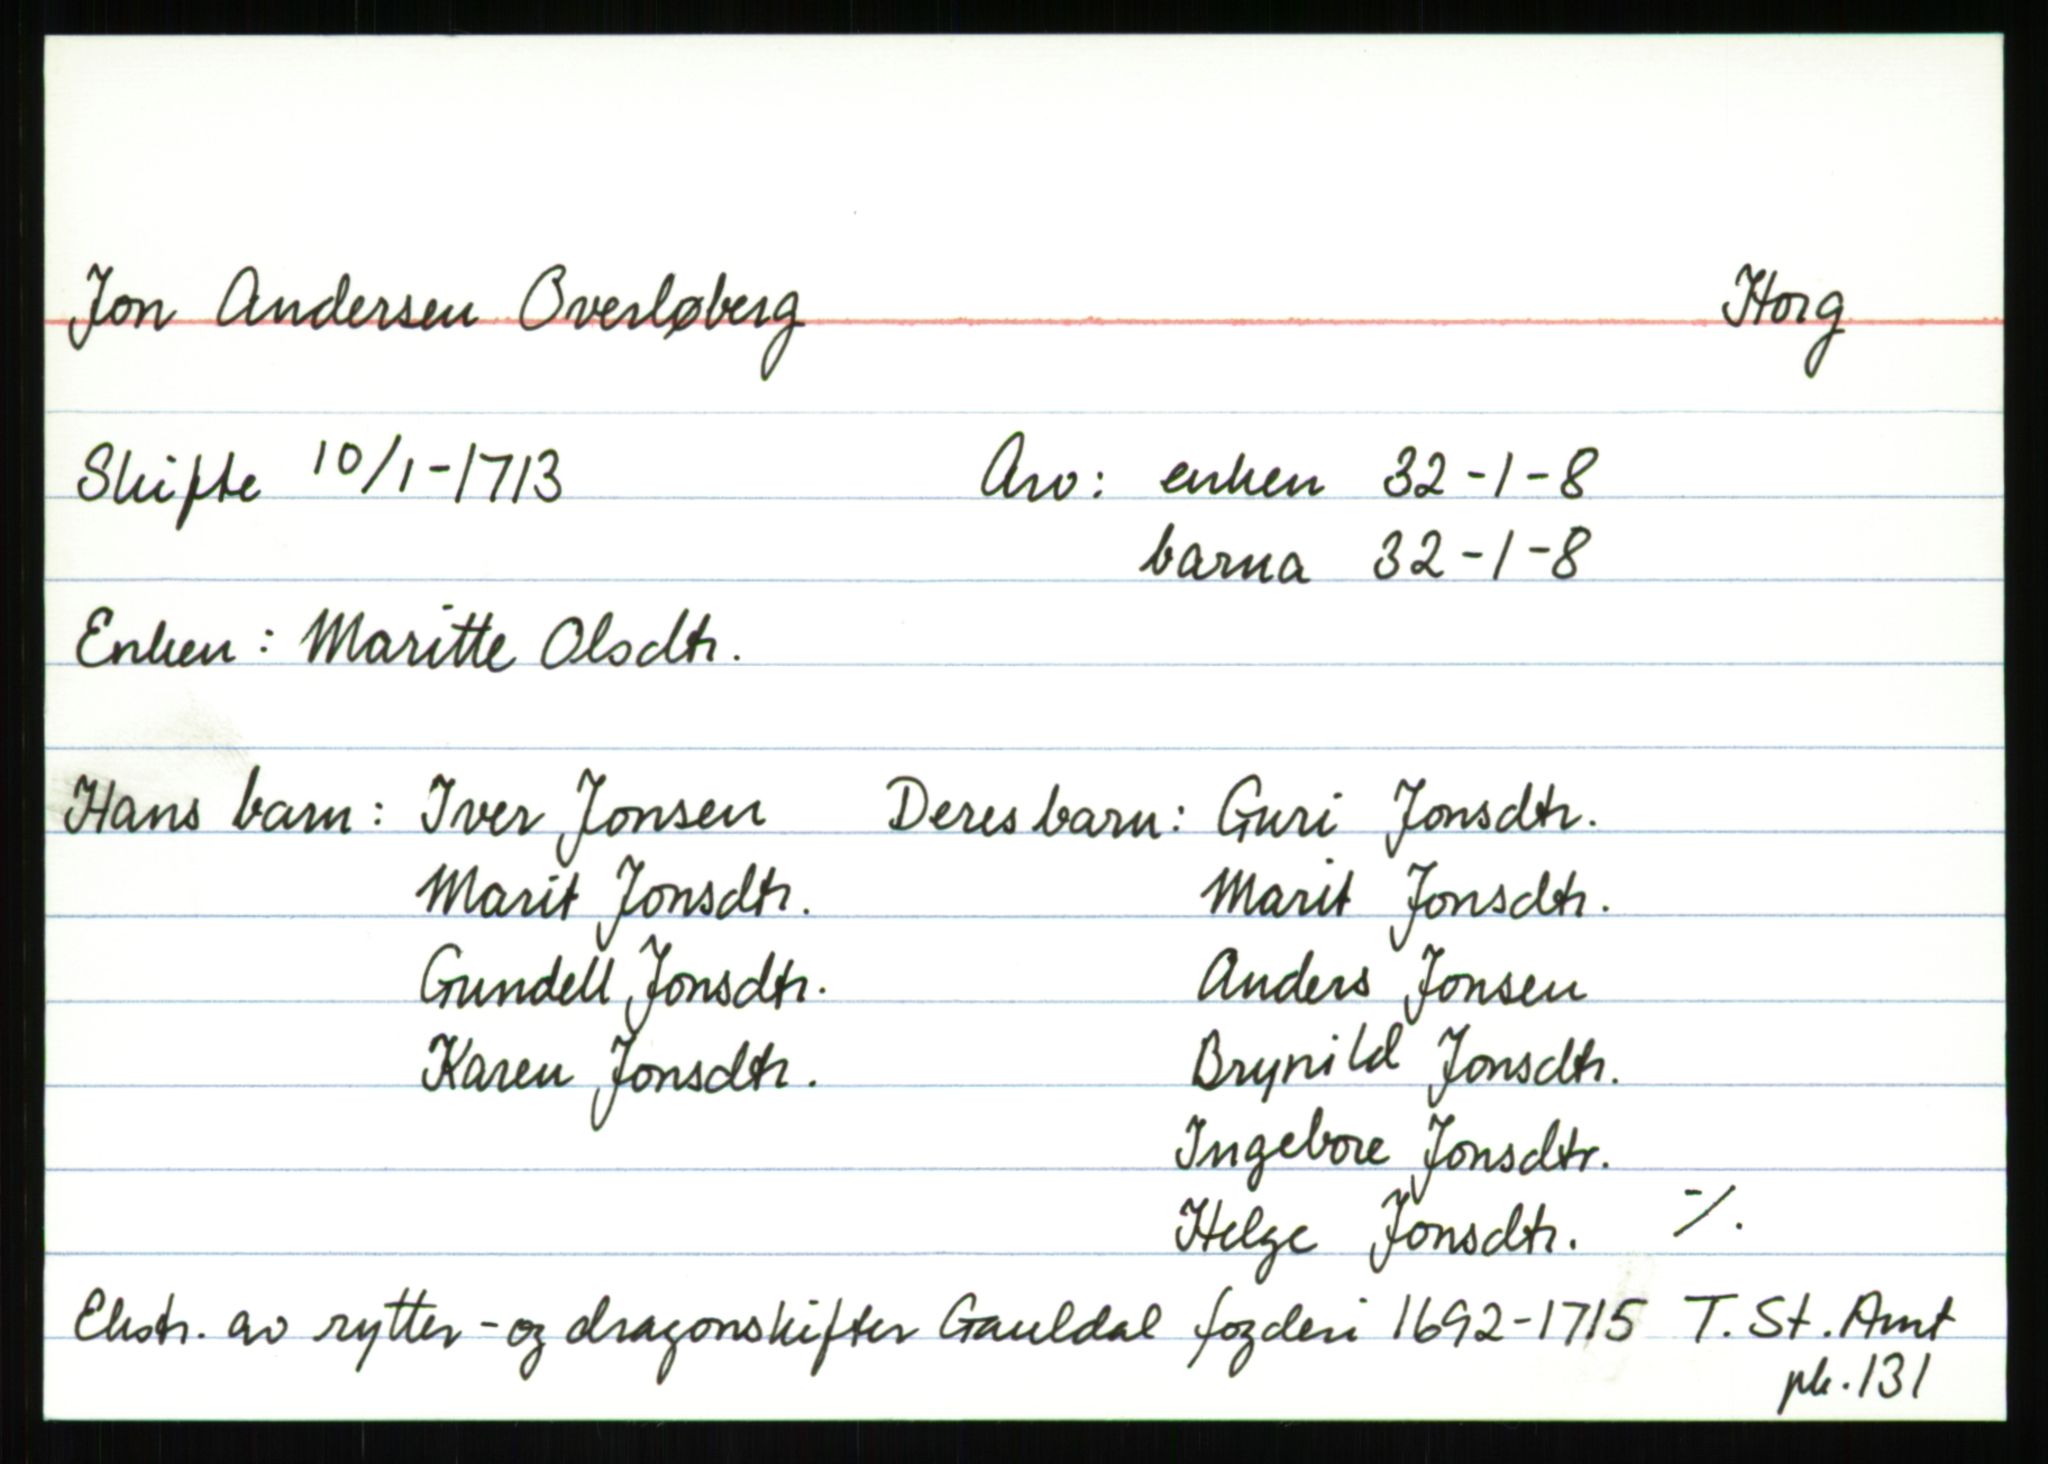 Jon Andersen Overløberg Horg
Skifte 10/1-1713 Arv: enken 32-1-8
barna 32-1-8
Enken: Maritte Olsdtr.
Hans barn: Iver Jonsen Deres barn: Guri Jonsdtr.
Marit Jonsdtr. Marit Jonsdtr.
Gundell Jonsdtr. Anders Jonsen
Karen Jonsdtr. Brynild Jonsdtr.
Ingebore Jonsdtr.
Helge Jonsdtr. ⁻/.
Ekstr. av rytter- og dragonskifter Gauldal fogderi 1692-1715 T. St. Amt
pk. 131